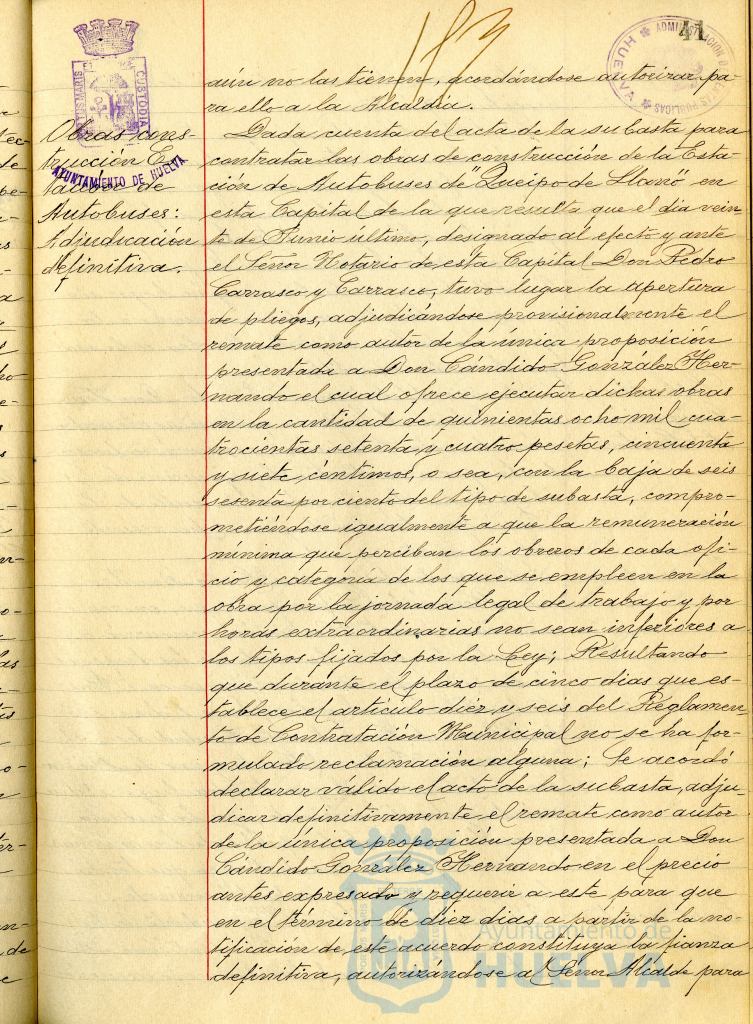 183
41
ADMINISTRACIÓN DE RENTAS PÚBLICAS
HUELVA
PORTUS MARIS
CUSTODIA
AYUNTAMIENTO DE HUELVA
Obras cons-
trucción Es-
tación de
Autobuses:
Adjudicación
definitiva.
aún no las tienen, acordándose autorizar pa-
ra ello a la Alcaldía.
Dada cuenta del acta de la subasta para
contratar las obras de construcción de la Esta-
ción de Autobuses de "Queipo de Llano" en
esta Capital de la que resulta que el día vein
te de Junio último, designado al efecto y ante
el Señor Notario de esta Capital Don Pedro
Carrasco y Carrasco, tuvo lugar la apertura
de pliegos, adjudicándose provisionalmente el
remate como autor de la única proposición
presentada a Don Cándido González Her-
nando el cual ofrece ejecutar dichas obras
en la cantidad de quinientas ocho mil cua-
trocientas setenta y cuatro pesetas, cincuenta
y siete céntimos, o sea, con la baja de seis
sesenta por ciento del tipo de subasta, compro-
metiéndose igualmente a que la remuneración
mínima que perciban los obreros de cada ofi-
cio y categoría de los que se empleen en la
obra por la jornada legal de trabajo y por
horas extraordinarias no sean inferiores a
los tipos fijados por la Ley; Resultando
que durante el plazo de cinco días que es-
tablece el artículo diez y seis del Reglamen-
to de Contratación Municipal no se ha for-
mulado reclamación alguna; Se acordó
declarar válido el acto de la subasta, adju-
dicar definitivamente el remate como autor
de la única proposición presentada a Don
Cándido González Hernando en el precio
antes expresado y requerir a este para que
en el término de diez días a partir de la no-
tificación de este acuerdo constituya la fianza
definitiva, autorizándose al Señor Alcalde para
Ayuntamiento de
HUELVA